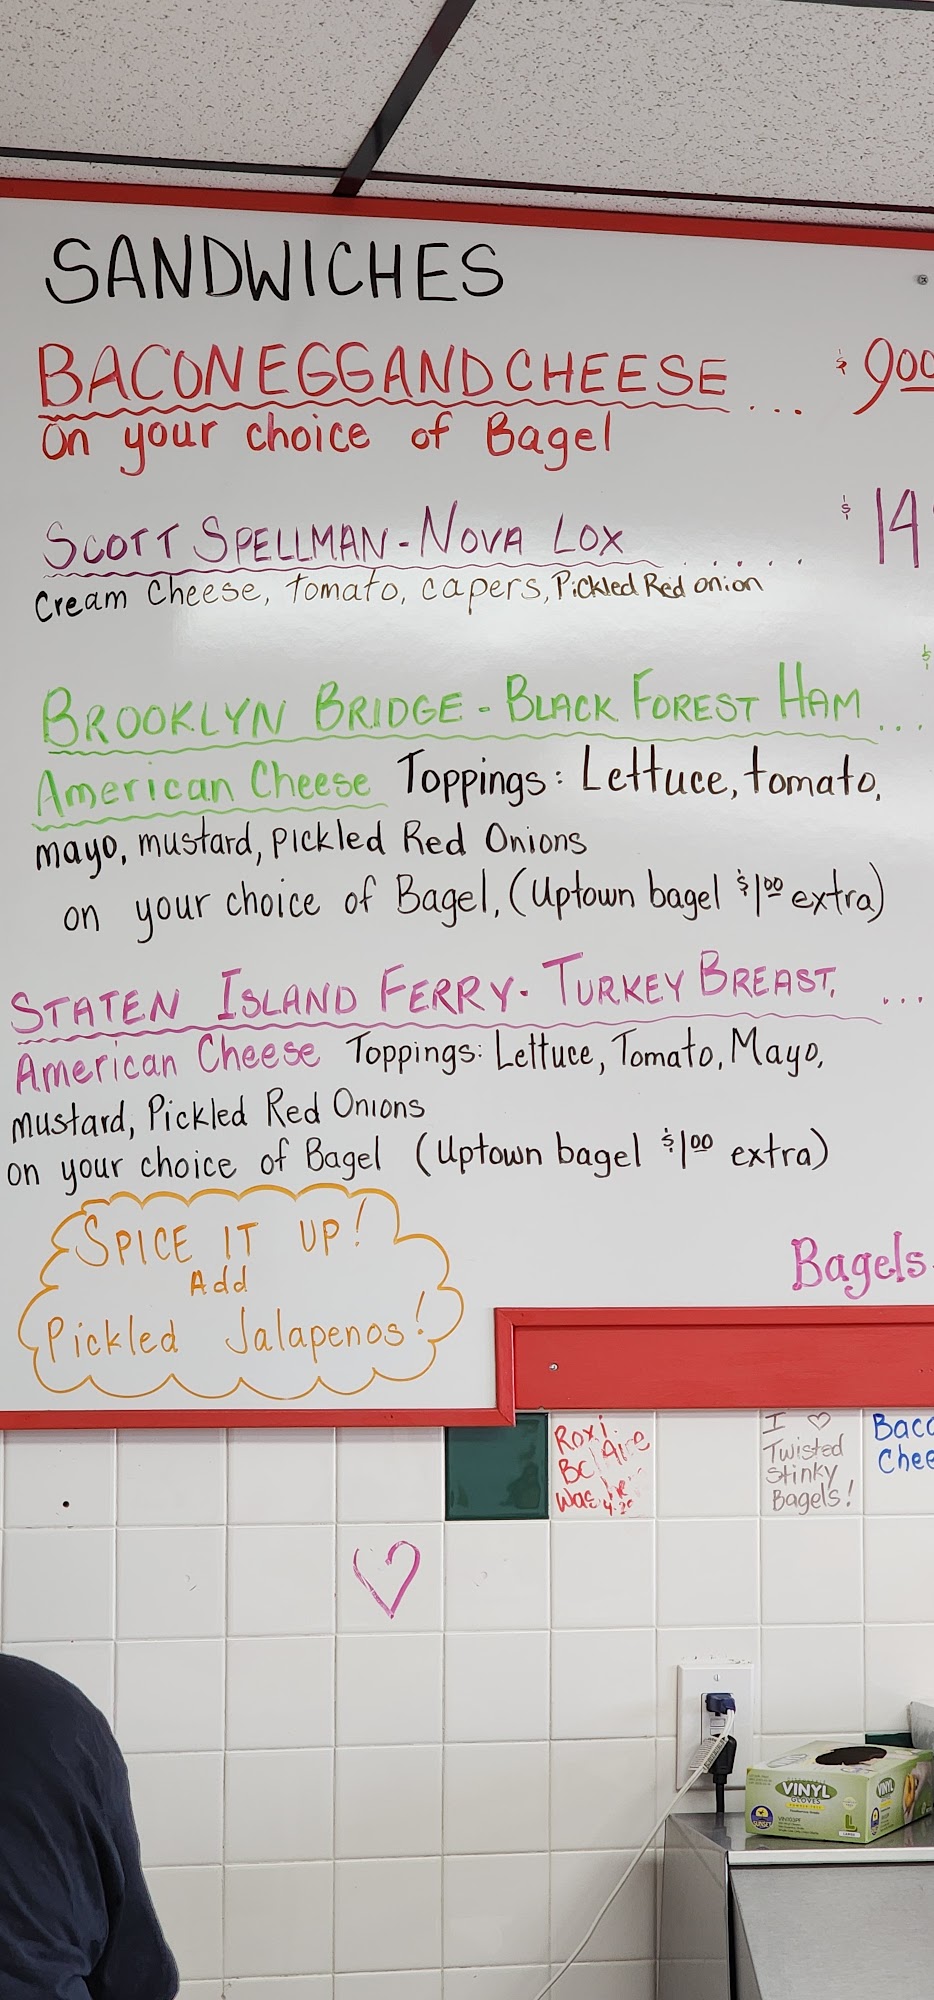 SANDWICHES
BACON EGG AND CHEESE ... $900
On your choice of Bagel
SCOTT SPELLMAN - NOVA LOX ...... $14
Cream Cheese, tomato, capers, Pickled Red onion
$
BROOKLYN BRIDGE - BLACK FOREST HAM ...
American Cheese Toppings: Lettuce, tomato,
mayo, mustard, pickled Red Onions
on your choice of Bagel, (Uptown bagel $1.00 extra)
STATEN ISLAND FERRY - TURKEY BREAST, ...
American Cheese Toppings: Lettuce, Tomato, Mayo,
mustard, Pickled Red Onions
on your choice of Bagel (Uptown bagel $1.00 extra)
SPICE IT UP!
Add
Pickled Jalapenos!
Bagels
Roxi
Was
4.20
I ♡
Twisted
Stinky
Bagels!
Bac
Chee
VINYL
GLOVES
L
LARGE
VINYL